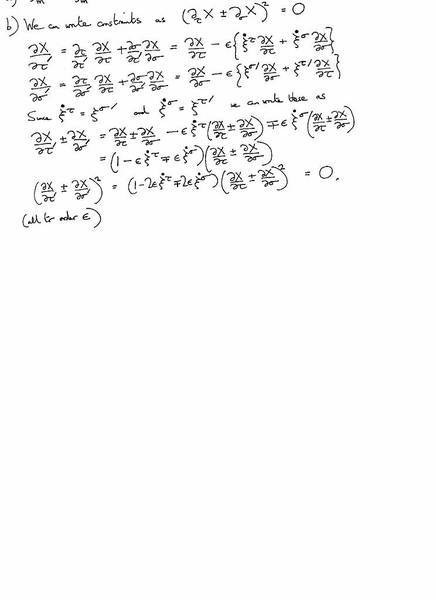 b) We can write constraints as (∂_τ X ± ∂_σ X)² = 0
∂X/∂τ' = ∂τ/∂τ' ∂X/∂τ + ∂σ/∂τ' ∂X/∂σ = ∂X/∂τ - ε{ξ̇^τ ∂X/∂τ + ξ̇^σ ∂X/∂σ}
∂X/∂σ' = ∂τ/∂σ' ∂X/∂τ + ∂σ/∂σ' ∂X/∂σ = ∂X/∂σ - ε{ξ^σ' ∂X/∂σ + ξ^τ' ∂X/∂τ}
Since ξ̇^τ = ξ^σ' and ξ̇^σ = ξ^τ' we can write these as
∂X/∂τ' ± ∂X/∂σ' = ∂X/∂τ ± ∂X/∂σ - εξ̇^τ(∂X/∂τ ± ∂X/∂σ) ∓ εξ̇^σ(∂X/∂τ ± ∂X/∂σ)
= (1 - εξ̇^τ ∓ εξ̇^σ)(∂X/∂τ ± ∂X/∂σ)
(∂X/∂τ' ± ∂X/∂σ')² = (1 - 2εξ̇^τ ∓ 2εξ̇^σ)(∂X/∂τ ± ∂X/∂σ)² = 0.
(all to order ε)